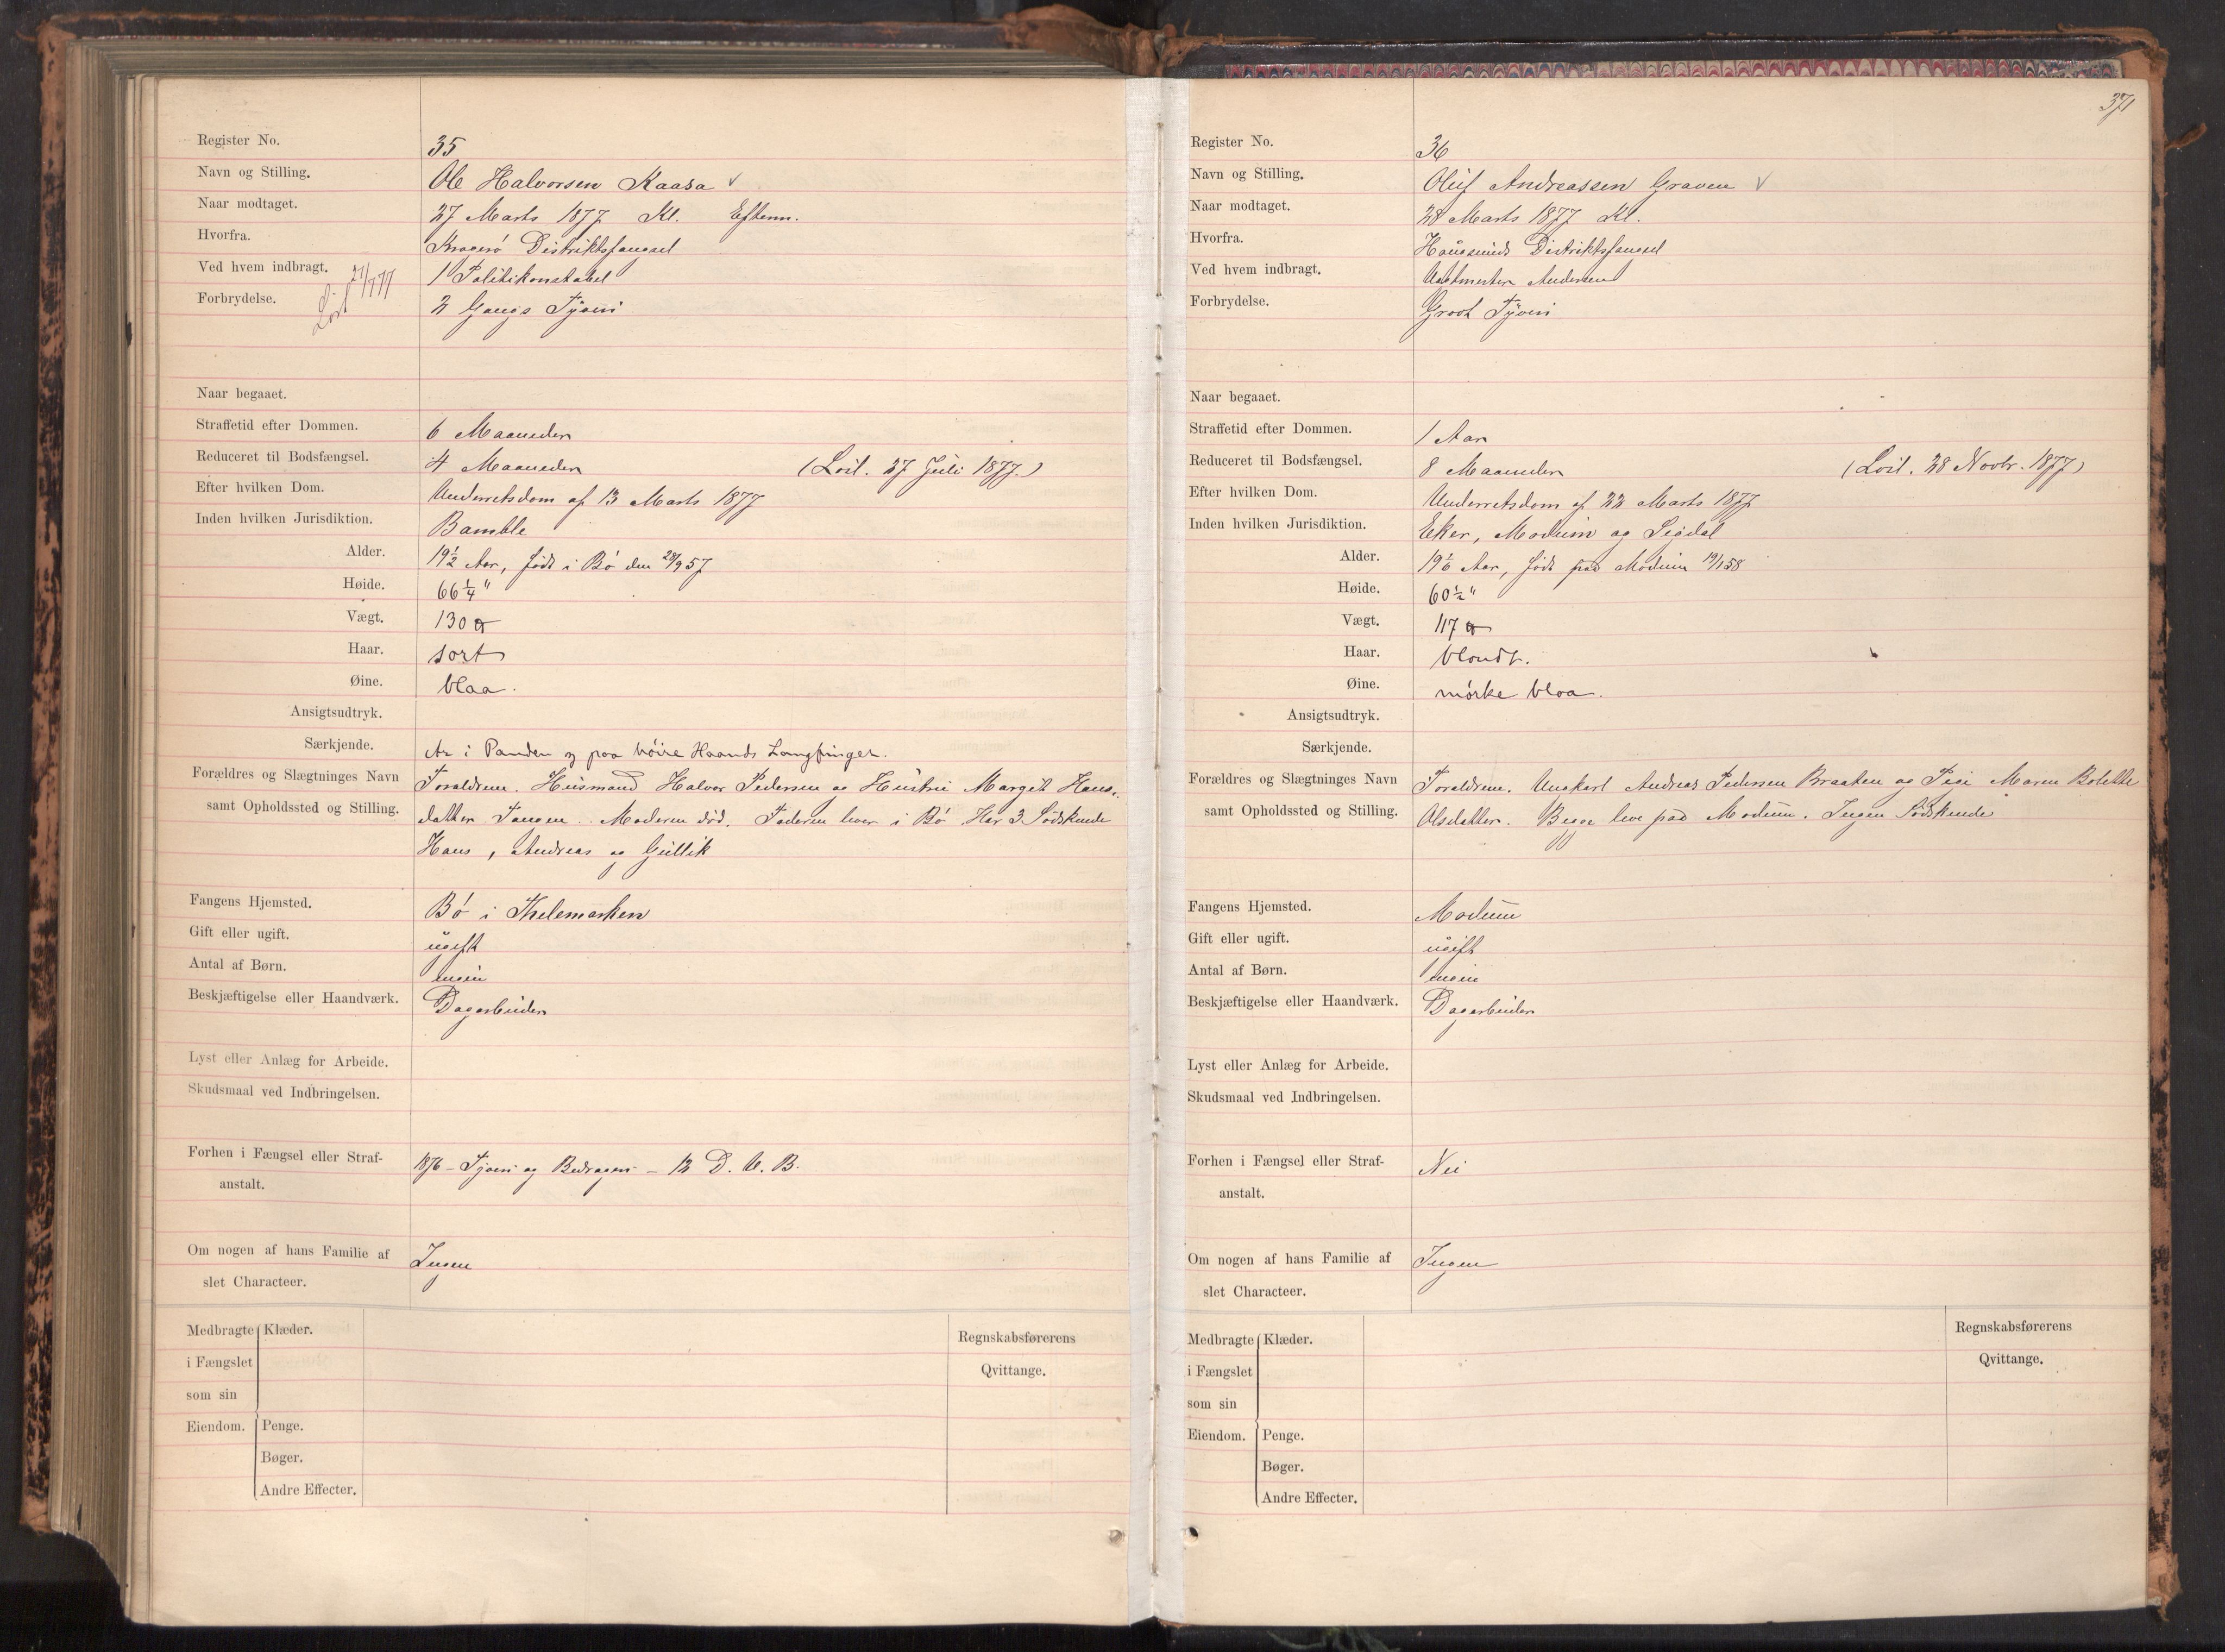 Register No. 35
Navn og Stilling. Ole Halvorsen Kaasa √
Naar modtaget. 27 Marts 1877 Kl. Efterm.
Hvorfra. Kragerö Distriktsfængsel
Ved hvem indbragt. 1 Politikonstabel
Forbrydelse. 2 Gangs Tyveri
Løsl 27/7 77
Naar begaaet.
Straffetid efter Dommen. 6 Maaneder
Reduceret til Bodsfængsel. 4 Maaneder (Løsl. 27 Juli 1877.)
Efter hvilken Dom. Underretsdom af 13 Marts 1877
Inden hvilken Jurisdiktion. Bamble
Alder. 19 1/2 Aar, født i Bö den 28/9 57
Høide. 66 1/4 "
Vægt. 130 ℔
Haar. sort
Øine. blaa.
Ansigtsudtryk.
Særkjende. Ar i Panden og paa høire Haands Langfinger.
Forældres og Slægtninges Navn Forældrene. Husmand Halvor Pedersen og Hustru Margit Hans-
samt Opholdssted og Stilling. datter Tangen. Moderen död. Faderen lever i Bö Har 3 Södskende
Hans, Andreas og Gullik
Fangens Hjemsted. Bö i Thelemarken
Gift eller ugift. ugift
Antal af Børn. ingen
Beskjæftigelse eller Haandværk. Dagarbeider
Lyst eller Anlæg for Arbeide.
Skudsmaal ved Indbringelsen.
Forhen i Fængsel eller Straf- 1876 - Tyveri og Bedrageri - 12 D. V. B.
anstalt.
Om nogen af hans Familie af Ingen
slet Characteer.
Medbragte Klæder. Regnskabsførerens
i Fængslet Qvittange.
som sin
Eiendom. Penge.
Bøger.
Andre Effecter.
371
Register No. 36
Navn og Stilling. Oluf Andreassen Graven √
Naar modtaget. 28 Marts 1877 Kl.
Hvorfra. Hougsunds Distriktsfængsel
Ved hvem indbragt. Vagtmester Andersen
Forbrydelse. Grovt Tyveri
Naar begaaet.
Straffetid efter Dommen. 1 Aar
Reduceret til Bodsfængsel. 8 Maaneder (Løsl. 28 Novbr. 1877)
Efter hvilken Dom. Underretsdom af 22 Marts 1877
Inden hvilken Jurisdiktion. Eker, Modum og Sigdal
Alder. 19 1/6 Aar, født paa Modum 19/1 58
Høide. 60 1/2 "
Vægt. 117 ℔
Haar. blondt.
Øine. mörke blaa.
Ansigtsudtryk.
Særkjende.
Forældres og Slægtninges Navn Forældrene. Ungkarl Andreas Pedersen Braaten og Pige Maren Bolette
samt Opholdssted og Stilling. Olsdatter. Begge leve paa Modum. Ingen Södskende
Fangens Hjemsted. Modum
Gift eller ugift. ugift
Antal af Børn. ingen
Beskjæftigelse eller Haandværk. Dagarbeider
Lyst eller Anlæg for Arbeide.
Skudsmaal ved Indbringelsen.
Forhen i Fængsel eller Straf- Nei
anstalt.
Om nogen af hans Familie af Ingen
slet Characteer.
Medbragte Klæder. Regnskabsførerens
i Fængslet Qvittange.
som sin
Eiendom. Penge.
Bøger.
Andre Effecter.